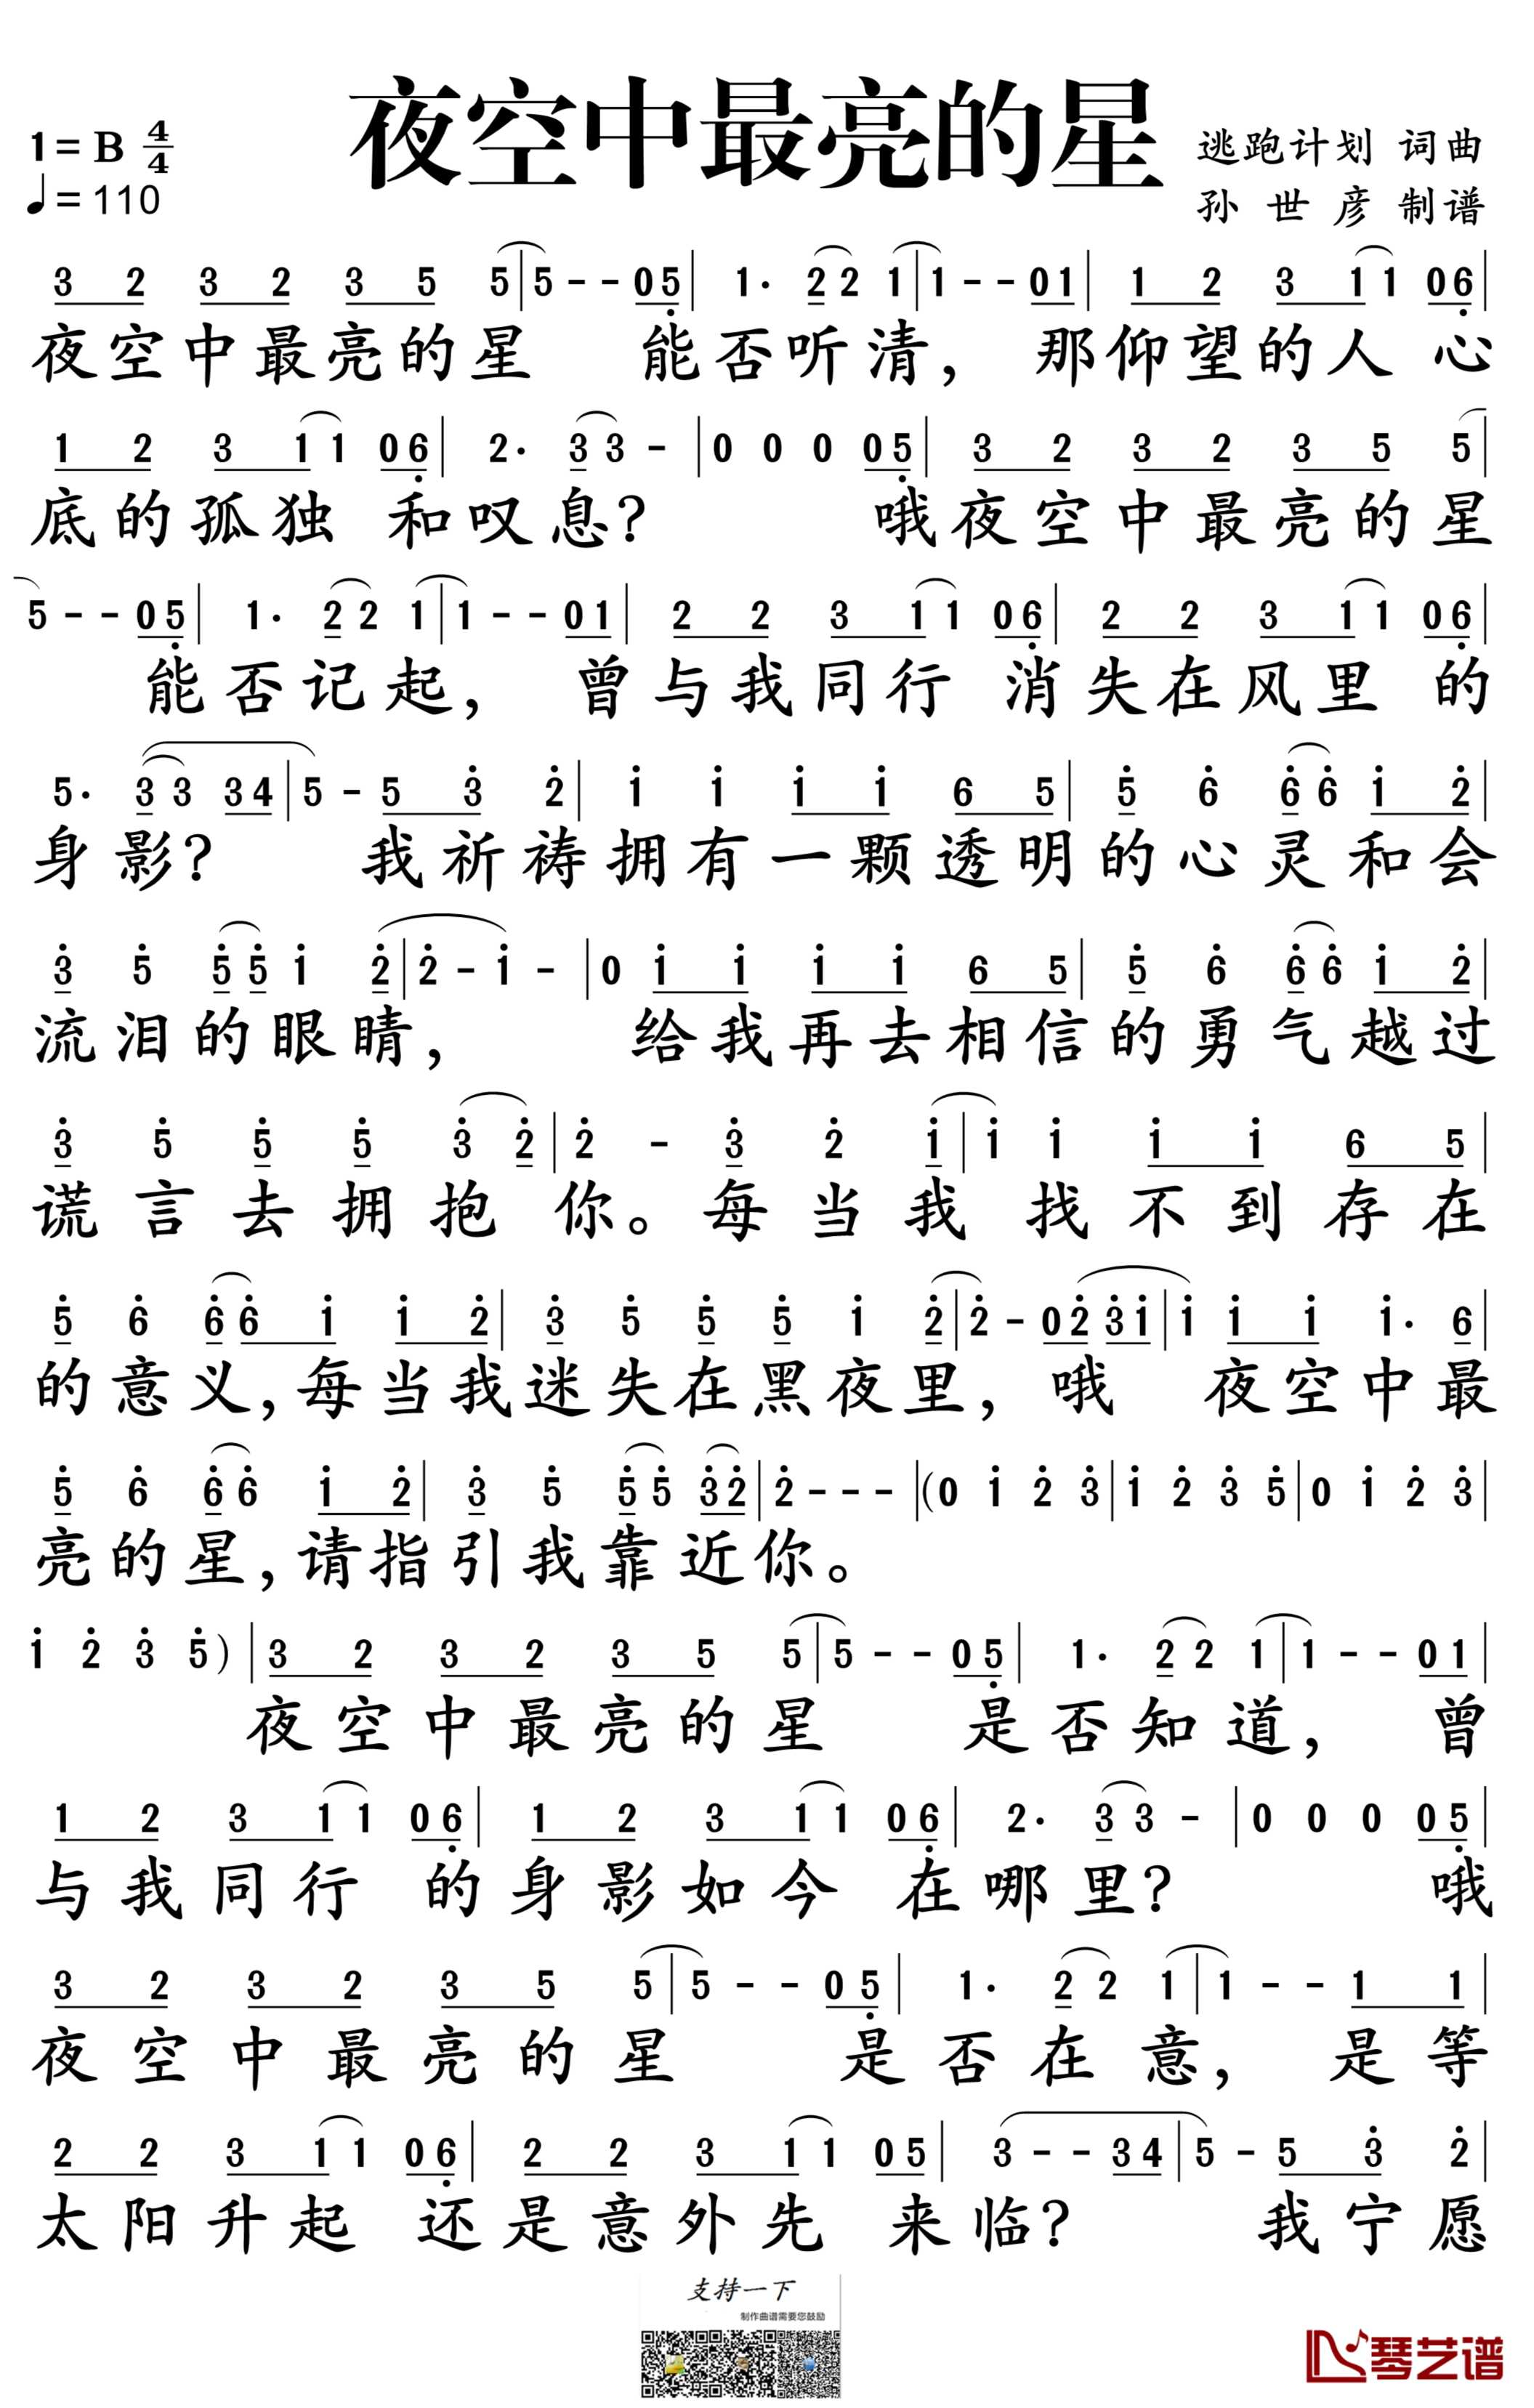 夜空中最亮的星
1=B 4/4
♩=110
逃跑计划 词曲
孙世彦 制谱
3 2 3 2 3 5 5|5 - - 0 5̣| 1. 2 2 1|1 - - 0 1| 1 2 3 1 1 0 6̣|
夜空中最亮的星 能否听清，那仰望的人 心
1 2 3 1 1 0 6̣| 2. 3 3 - |0 0 0 0 5̣| 3 2 3 2 3 5 5|
底的孤独 和叹息？ 哦夜空中最亮的星
5 - - 0 5̣| 1. 2 2 1|1 - - 0 1| 2 2 3 1 1 0 6̣| 2 2 3 1 1 0 6̣|
能否记起，曾与我同行 消失在风里 的
5. 3 3 3 4|5 - 5 3̇ 2̇| 1̇ 1̇ 1̇ 1̇ 6 5| 5̇ 6̇ 6̇ 6̇ 1̇ 2̇|
身影？ 我祈祷拥有一颗透明的心灵和会
3̇ 5̇ 5̇ 5̇ 1̇ 2̇|2̇ - 1̇ - |0 1̇ 1̇ 1̇ 1̇ 6 5| 5̇ 6̇ 6̇ 6̇ 1̇ 2̇|
流泪的眼睛， 给我再去相信的勇气越过
3̇ 5̇ 5̇ 5̇ 3̇ 2̇|2̇ - 3̇ 2̇ 1̇|1̇ 1̇ 1̇ 1̇ 6 5|
谎言去拥抱你。每当我找不到存在
5̇ 6̇ 6̇ 6̇ 1̇ 1̇ 2̇| 3̇ 5̇ 5̇ 5̇ 1̇ 2̇|2̇ - 0 2̇ 3̇ 1̇|1̇ 1̇ 1̇ 1̇. 6|
的意义，每当我迷失在黑夜里，哦 夜空中最
5̇ 6̇ 6̇ 6̇ 1̇ 2̇| 3̇ 5̇ 5̇ 5̇ 3̇ 2̇|2̇ - - - |(0 1̇ 2̇ 3̇|1̇ 2̇ 3̇ 5̇|0 1̇ 2̇ 3̇|
亮的星，请指引我靠近你。
1̇ 2̇ 3̇ 5̇)|3 2 3 2 3 5 5|5 - - 0 5̣| 1. 2 2 1|1 - - 0 1|
夜空中最亮的星 是否知道，曾
1 2 3 1 1 0 6̣| 1 2 3 1 1 0 6̣| 2. 3 3 - |0 0 0 0 5̣|
与我同行 的身影如今 在哪里？ 哦
3 2 3 2 3 5 5|5 - - 0 5̣| 1. 2 2 1|1 - - 1 1|
夜空中最亮的星 是否在意，是等
2 2 3 1 1 0 6̣| 2 2 3 1 1 0 5| 3 - - 3 4|5 - 5 3̇ 2̇|
太阳升起 还是意外先 来临？ 我宁愿
支持一下
制作曲谱需要您鼓励
琴艺谱